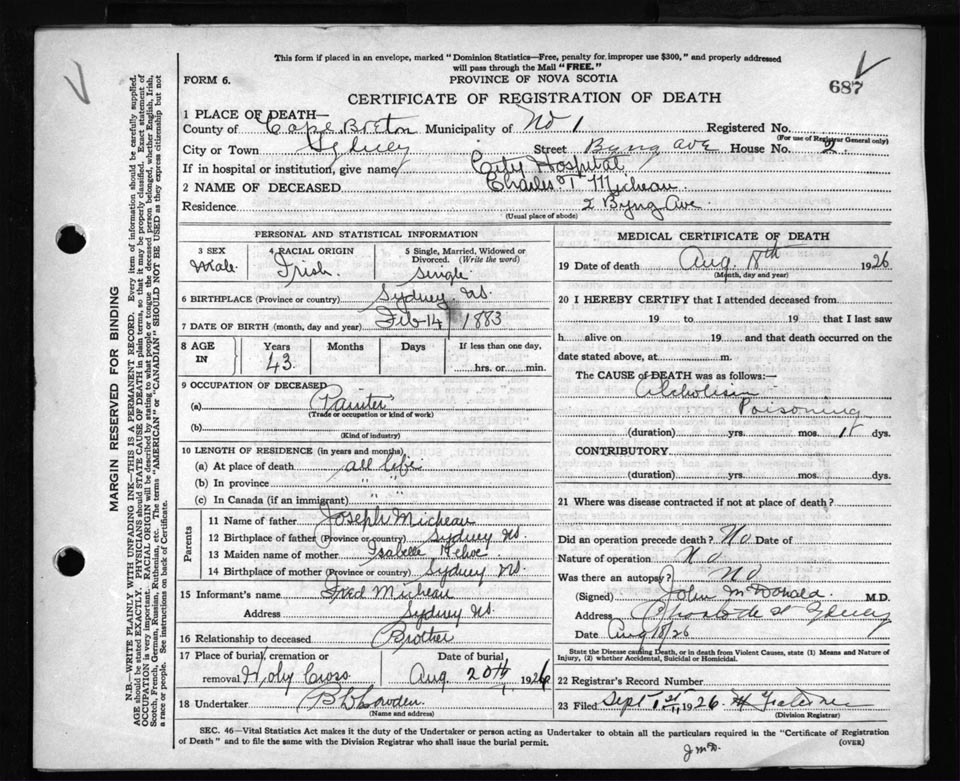 This form if placed in an envelope, marked "Dominion Statistics—Free, penalty for improper use $300," and properly addressed
will pass through the Mail "FREE."
FORM 6.
PROVINCE OF NOVA SCOTIA
687
CERTIFICATE OF REGISTRATION OF DEATH
1 PLACE OF DEATH—
County of Cape Breton Municipality of No 1 Registered No.
(For use of Registrar General only)
City or Town Sydney Street Byng Ave House No. 2
If in hospital or institution, give name City Hospital
2 NAME OF DECEASED Charles T Micheau
Residence 2 Byng Ave
(Usual place of abode)
PERSONAL AND STATISTICAL INFORMATION
3 SEX Male
4 RACIAL ORIGIN Irish
5 Single, Married, Widowed or Divorced. (Write the word) Single
6 BIRTHPLACE (Province or country) Sydney NS.
7 DATE OF BIRTH (month, day and year) Feb 14 1883
8 AGE IN Years 43 Months Days If less than one day, hrs. or min.
9 OCCUPATION OF DECEASED
(a) Painter
(Trade or occupation or kind of work)
(b)
(Kind of industry)
10 LENGTH OF RESIDENCE (in years and months)
(a) At place of death all life
(b) In province " "
(c) In Canada (if an immigrant)
Parents
11 Name of father Joseph Micheau
12 Birthplace of father (Province or country) Sydney NS.
13 Maiden name of mother Isabelle Kehoe
14 Birthplace of mother (Province or country) Sydney NS
15 Informant's name Fred Micheau
Address Sydney NS.
16 Relationship to deceased Brother
17 Place of burial, cremation or removal Holy Cross
Date of burial Aug. 20th, 1926
18 Undertaker
(Name and address)
MEDICAL CERTIFICATE OF DEATH
19 Date of death Aug. 1926
(Month, day and year)
20 I HEREBY CERTIFY that I attended deceased from
19 to 19 that I last saw
h alive on 19 and that death occurred on the
date stated above, at m.
The CAUSE of DEATH was as follows:—
Poisoning
(duration) yrs. mos. dys.
CONTRIBUTORY
(duration) yrs. mos. dys.
21 Where was disease contracted if not at place of death?
Did an operation precede death? No Date of
Nature of operation No
Was there an autopsy? No
(Signed) John McDonald M.D.
Address Sydney
Date Aug 18/26
State the Disease causing Death, or in death from Violent Causes, state (1) Means and Nature of
Injury, (2) whether Accidental, Suicidal or Homicidal.
22 Registrar's Record Number
23 Filed Sept 1926
(Division Registrar)
SEC. 46—Vital Statistics Act makes it the duty of the Undertaker or person acting as Undertaker to obtain all the particulars required in the "Certificate of Registration
of Death" and to file the same with the Division Registrar who shall issue the burial permit.
(OVER)
MARGIN RESERVED FOR BINDING
N.B.—WRITE PLAINLY WITH UNFADING INK—THIS IS A PERMANENT RECORD. Every item of information should be carefully supplied.
AGE should be stated EXACTLY. PHYSICIANS should STATE CAUSE OF DEATH in plain terms, so that it may be properly classified. Exact statement of
OCCUPATION is very important. RACIAL ORIGIN will be described by stating to what people or tongue the deceased person belonged, whether English, Irish,
Scotch, French, German, Russian, Ruthenian, etc. The terms "AMERICAN" or "CANADIAN" SHOULD NOT BE USED as they express citizenship but not
a race or people. See instructions on back of Certificate.